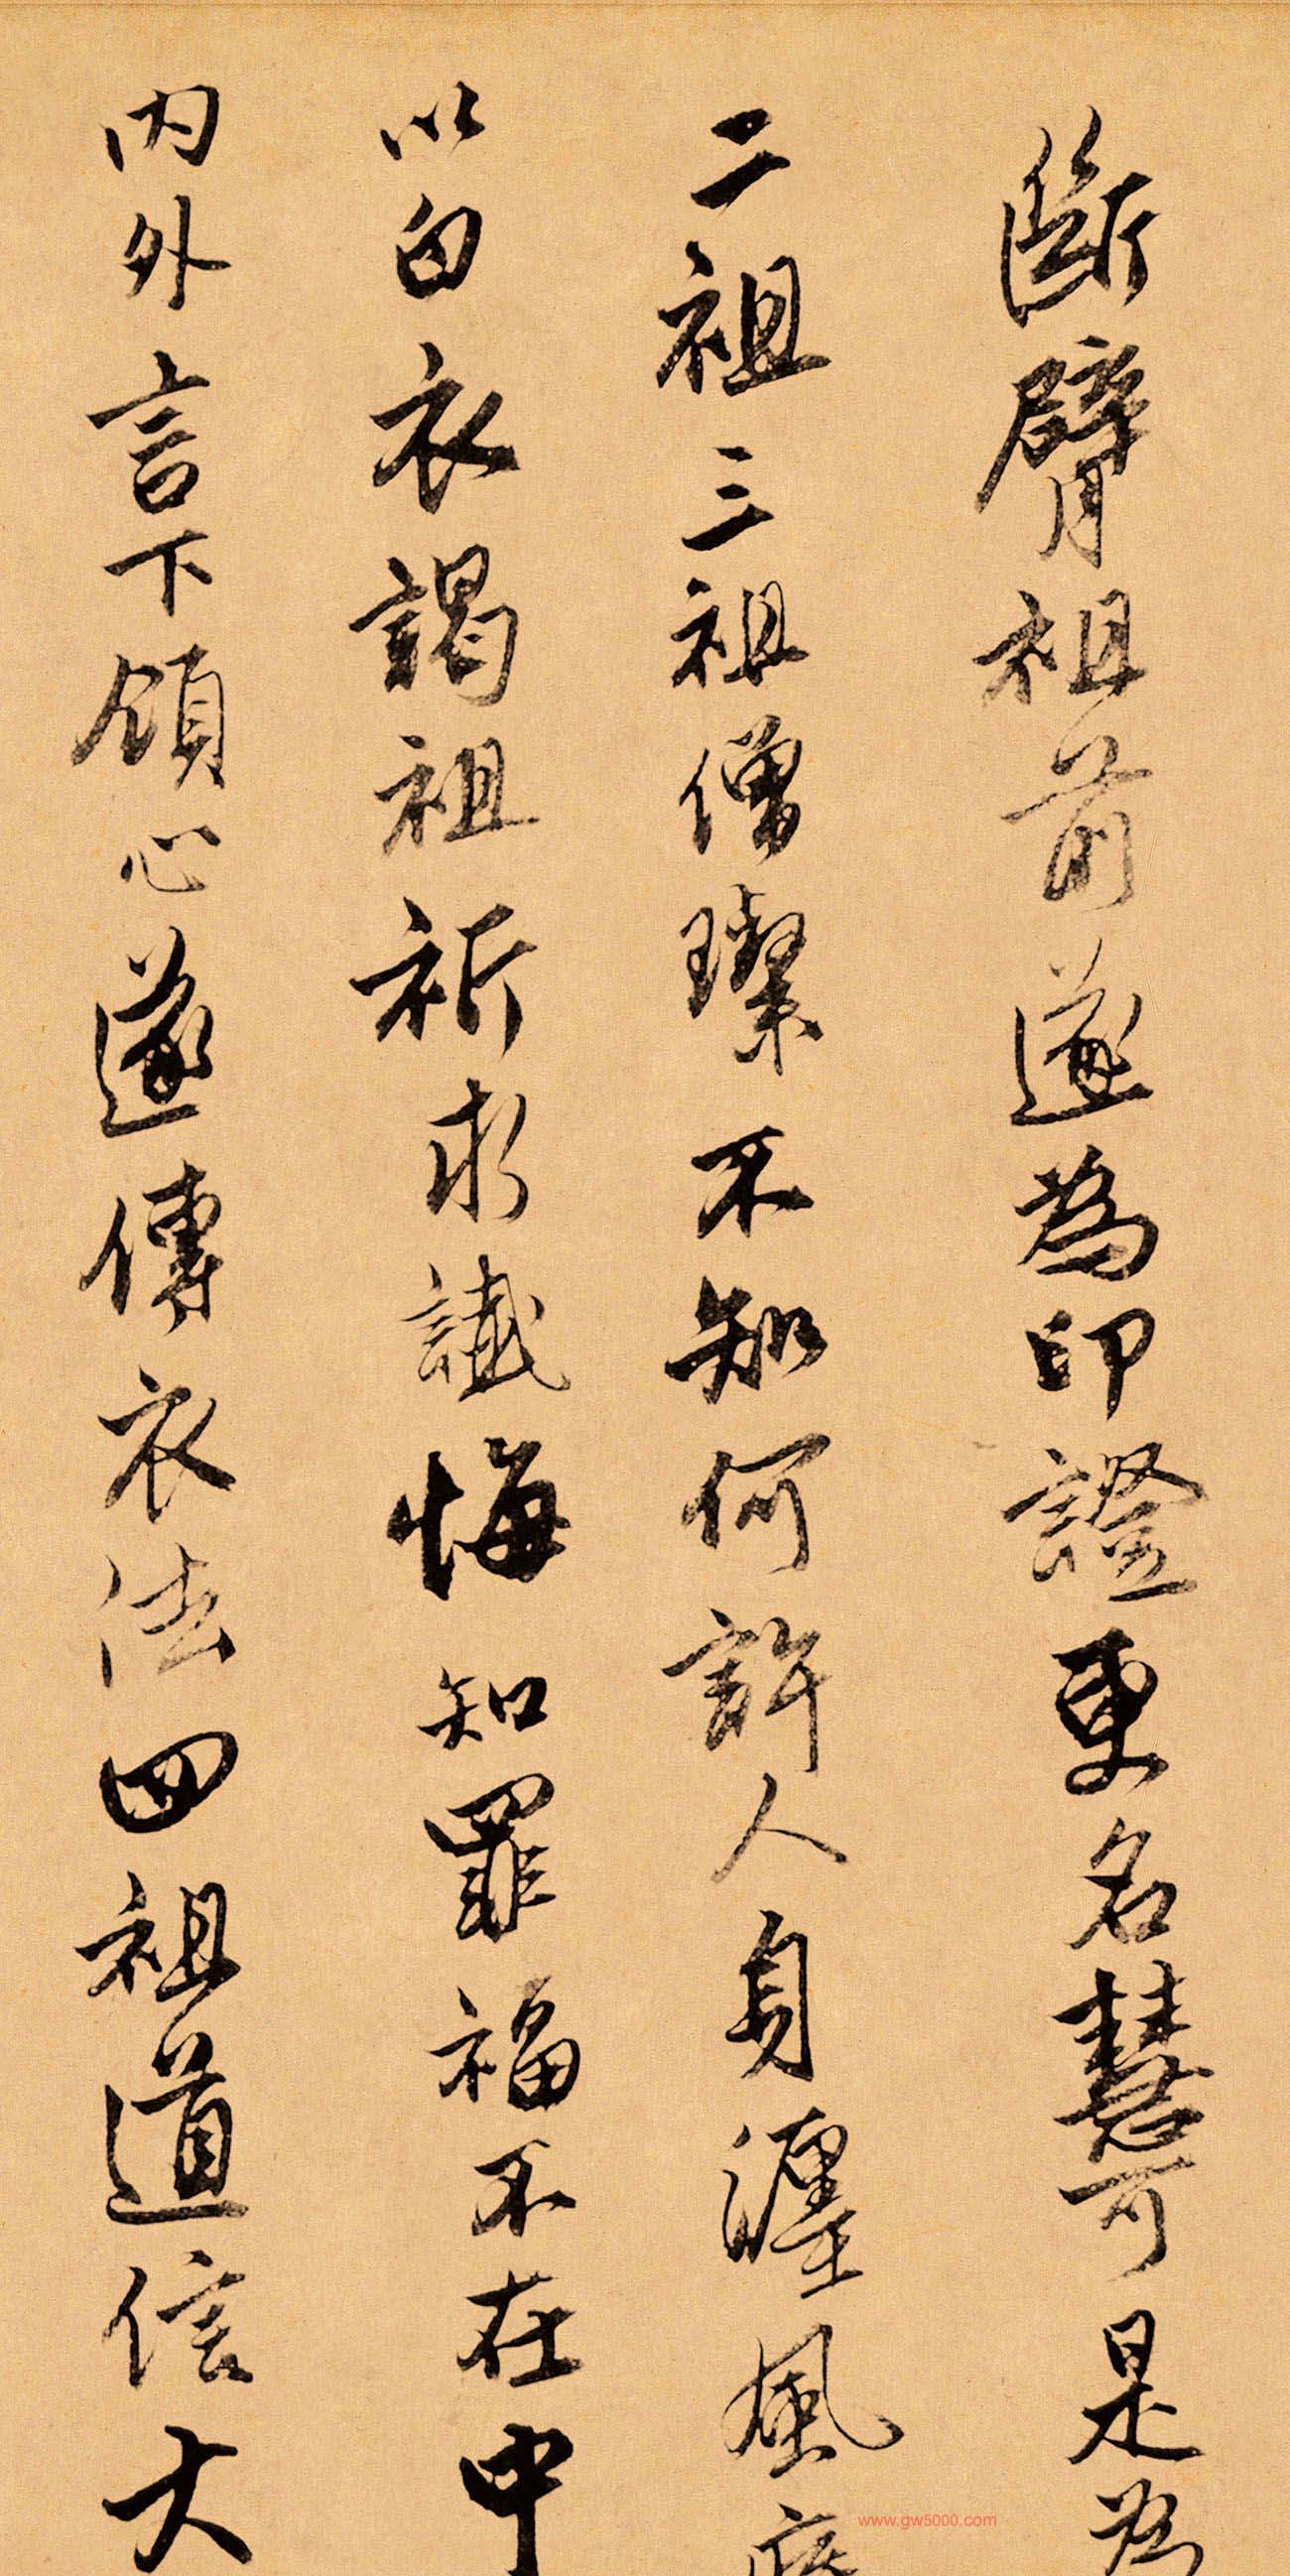 斷臂祖前遂為印證更名慧可是為
二祖三祖僧璨不知何許人身瀍風疾
以白衣謁祖祈求讖悔知罪福不在中
内外言下領心遂傳衣法四祖道信大
www.gw5000.com